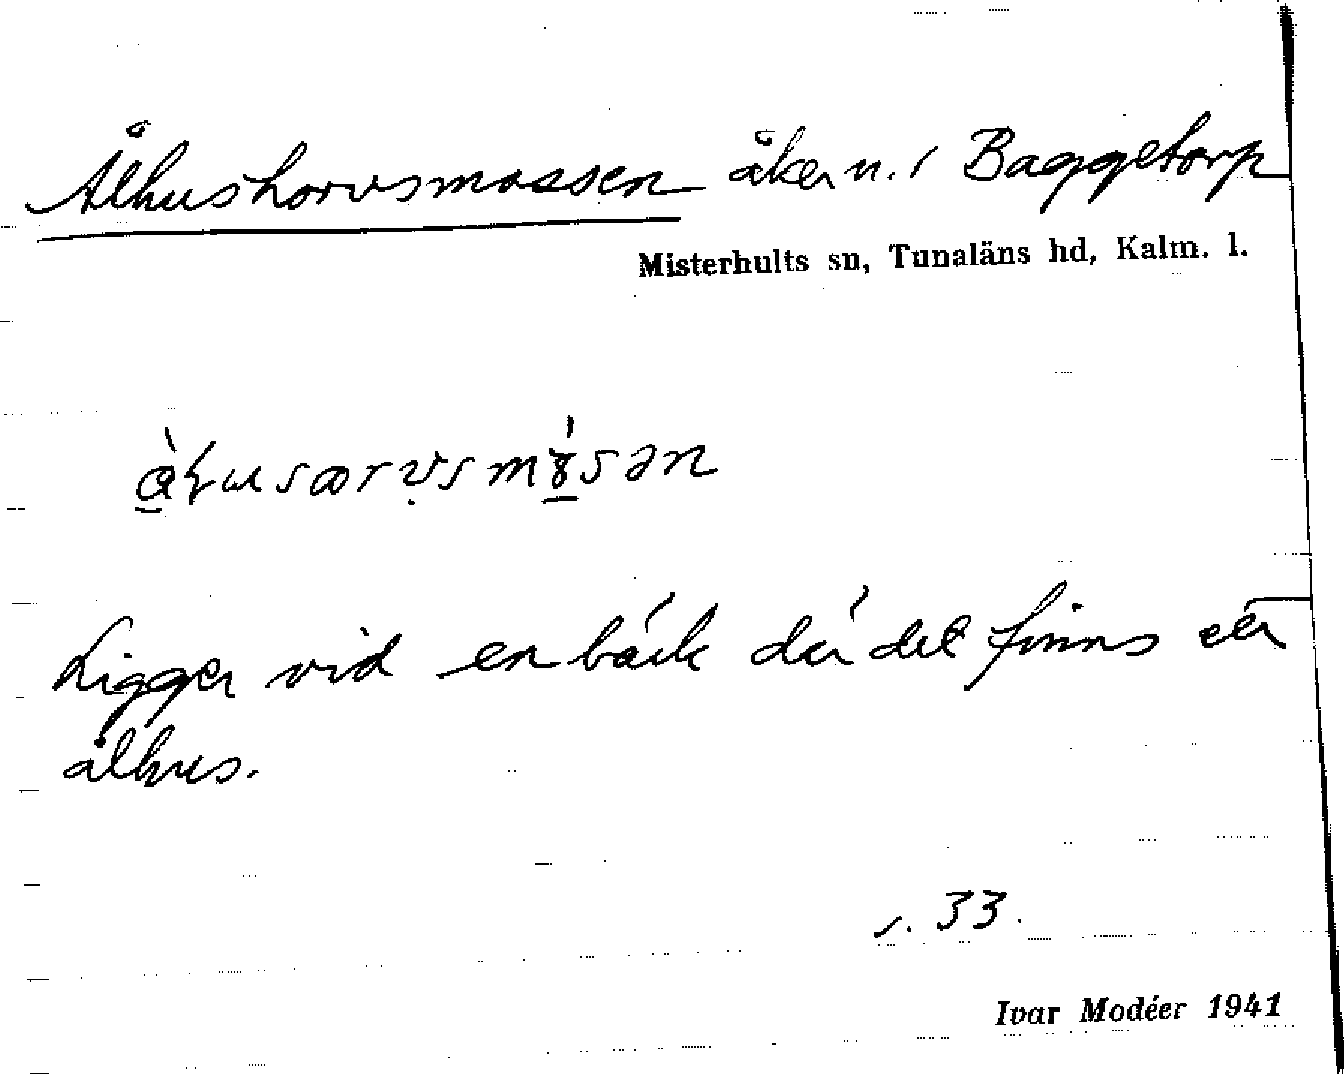 Ålhushorvsmossen åker n. i Baggetorp
Misterhults sn, Tunaläns hd, Kalm. l.
Ligger vid en bäck där det finns ett
ålhus.
s. 33.
Ivar Modéer 1941